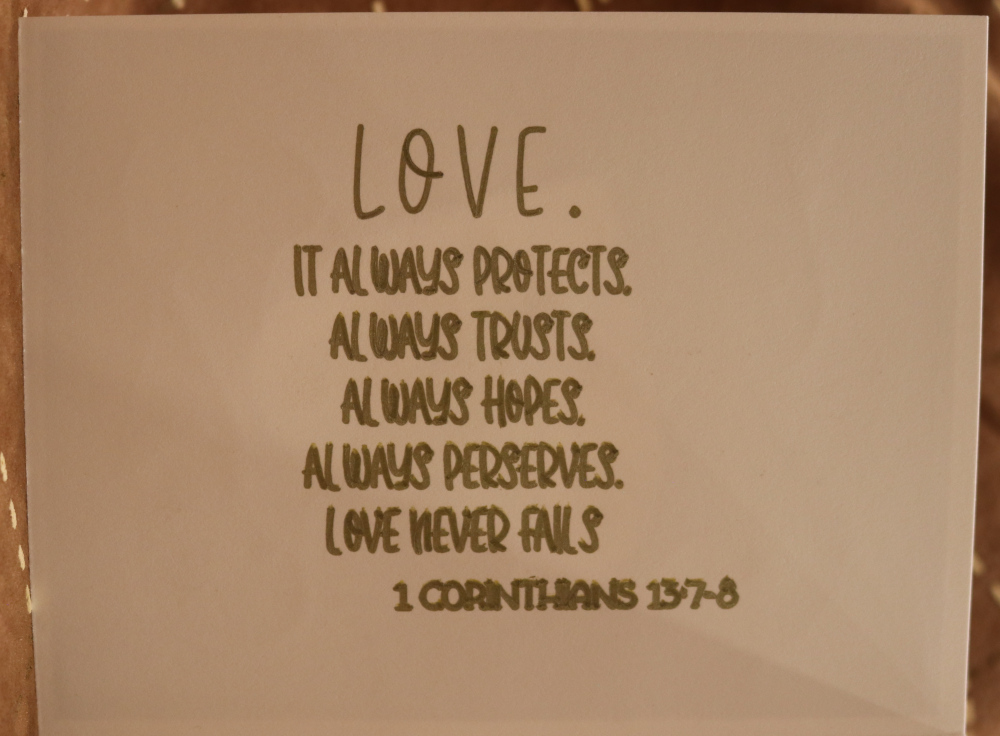 LOVE.
IT ALWAYS PROTECTS.
ALWAYS TRUSTS.
ALWAYS HOPES.
ALWAYS PERSERVES.
LOVE NEVER FAILS
1 CORINTHIANS 13:7-8